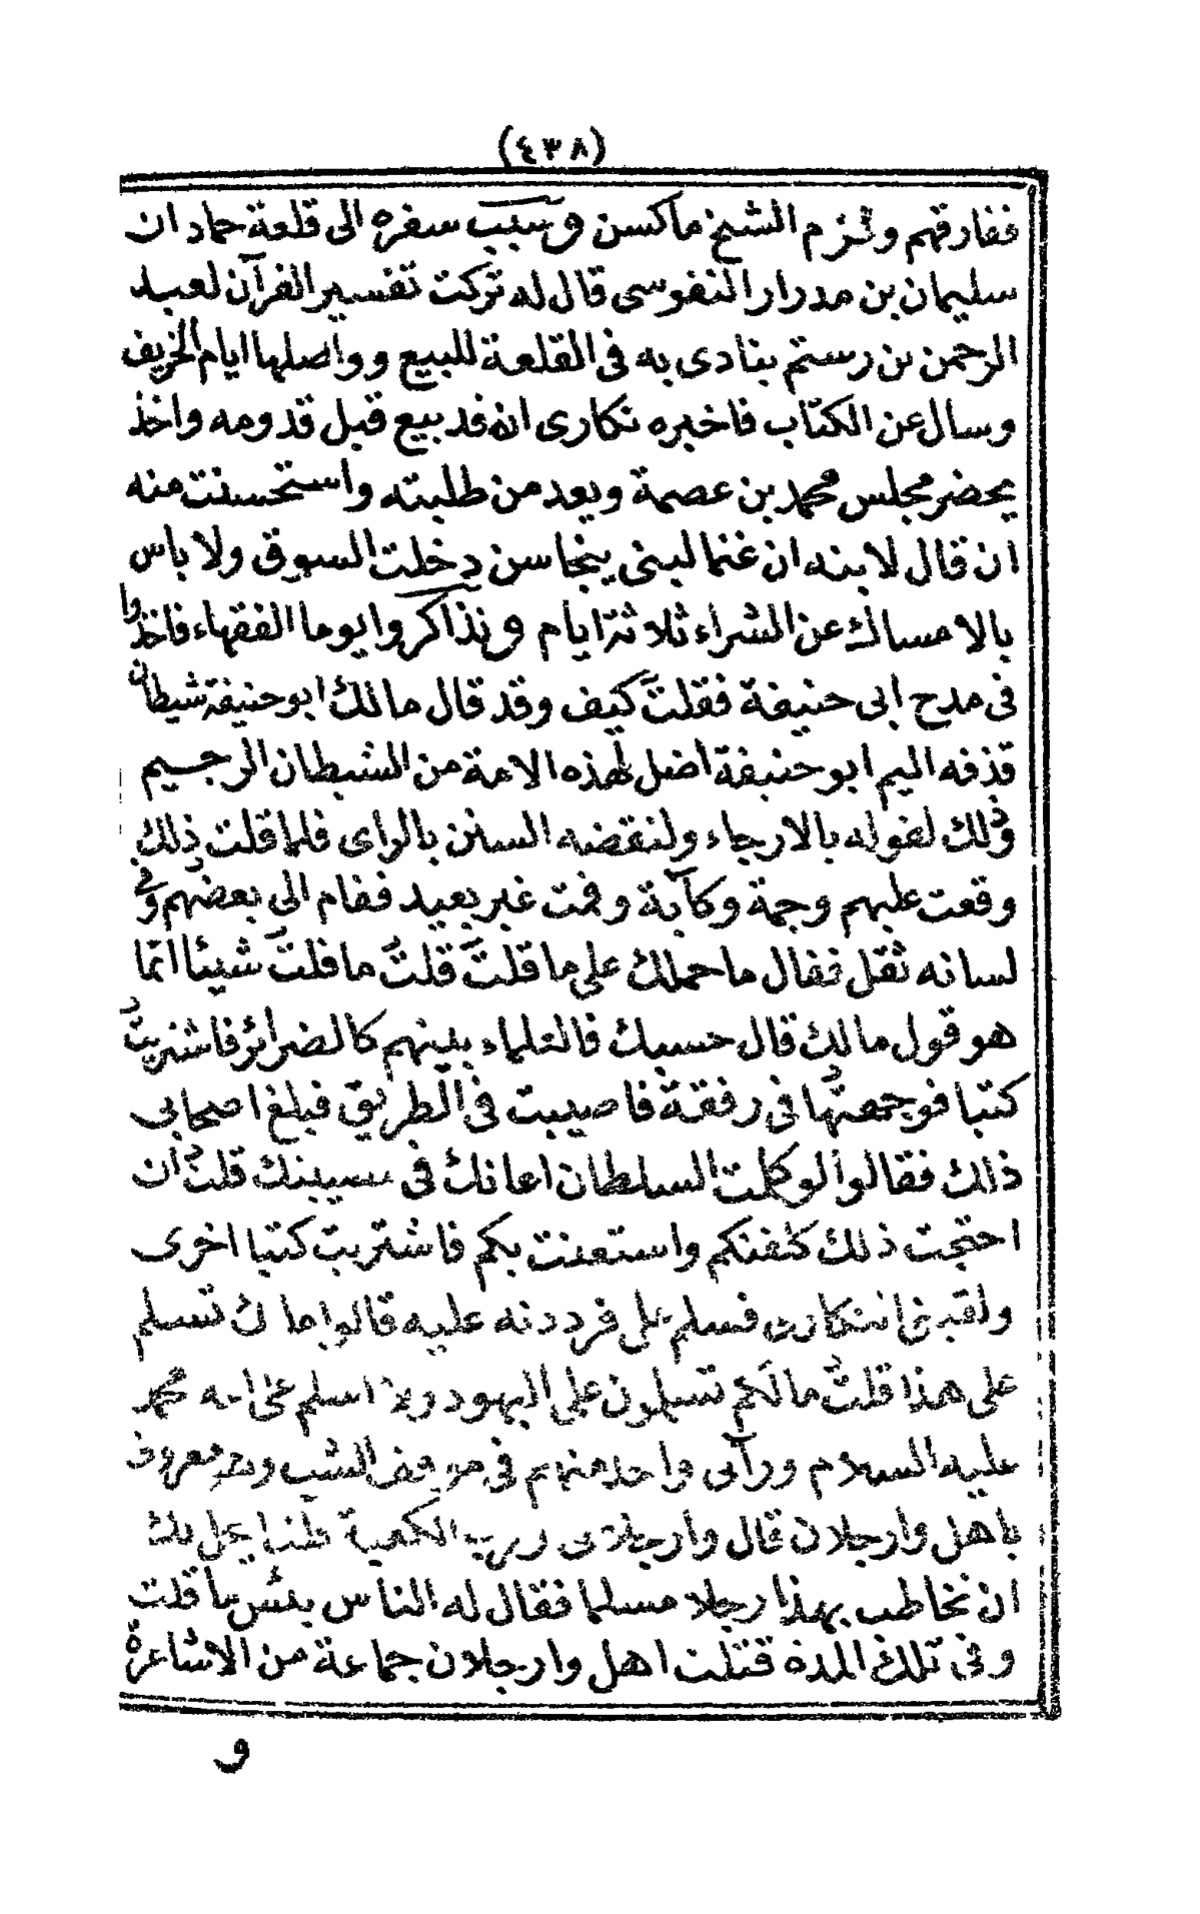 (٤٣٨)
ففارقهم ولزم الشيخ ماكسن وسبب سفره الى قلعة حماد ان
سليمان بن مدرار النفوسى قال له تركت تفسير القرآن لعبد
الرحمن بن رستم ينادى به فى القلعة للبيع وواصلها ايام الخريف
وسال عن الكتاب فاخبره نكارى انه قد بيع قبل قدومه واخذ
يحضر مجلس محمد بن عصمة ويعد من طلبته واستحسنت منه
ان قال لابنه ان غنما لبنى ينجاسن دخلت السوق ولا باس
بالامساك عن الشراء ثلاثة ايام وتذاكروا يوما الفقهاء فاخذوا
فى مدح ابى حنيفة فقلت كيف وقد قال مالك ابو حنيفة شيطان
قذفه اليم ابو حنيفة اضل لهذه الامة من الشيطان الرجيم
وذلك لقوله بالارجاء ولنقضه السنن بالراى فلما قلت ذلك
وقعت عليهم وجمة وكآبة وقمت غير بعيد فقام الى بعضهم وفى
لسانه ثقل فقال ما حملك على ما قلت قلت ما قلت شيئا انما
هو قول مالك قال حسبك فالعلماء بينهم كالضرائر فاشتريت
كتبا فوجهتها فى رفقة فاصيبت فى الطريق فبلغ اصحابى
ذلك فقالوا لو كلمت السلطان اعانك فى سبيبتك قلت ان
احتجت ذلك كلفتكم واستعنت بكم فاشتريت كتبا اخرى
ولقينى نكارى فسلم على فرددته عليه قالوا مالك تسلم
على هذا قلت مالكم تسلمون على اليهود ولا اسلم على امة محمد
عليه السلام ورآنى واحد منهم فى موقف الشب وهو معروف
باهل وارجلان قال وارجلانى ورب الكعبة قلنا يحل لك
ان تخاطب بهذا رجلا مسلما فقال له الناس بئس ما قلت
وفى تلك المدة قتلت اهل وارجلان جماعة من الاشاعرة
و